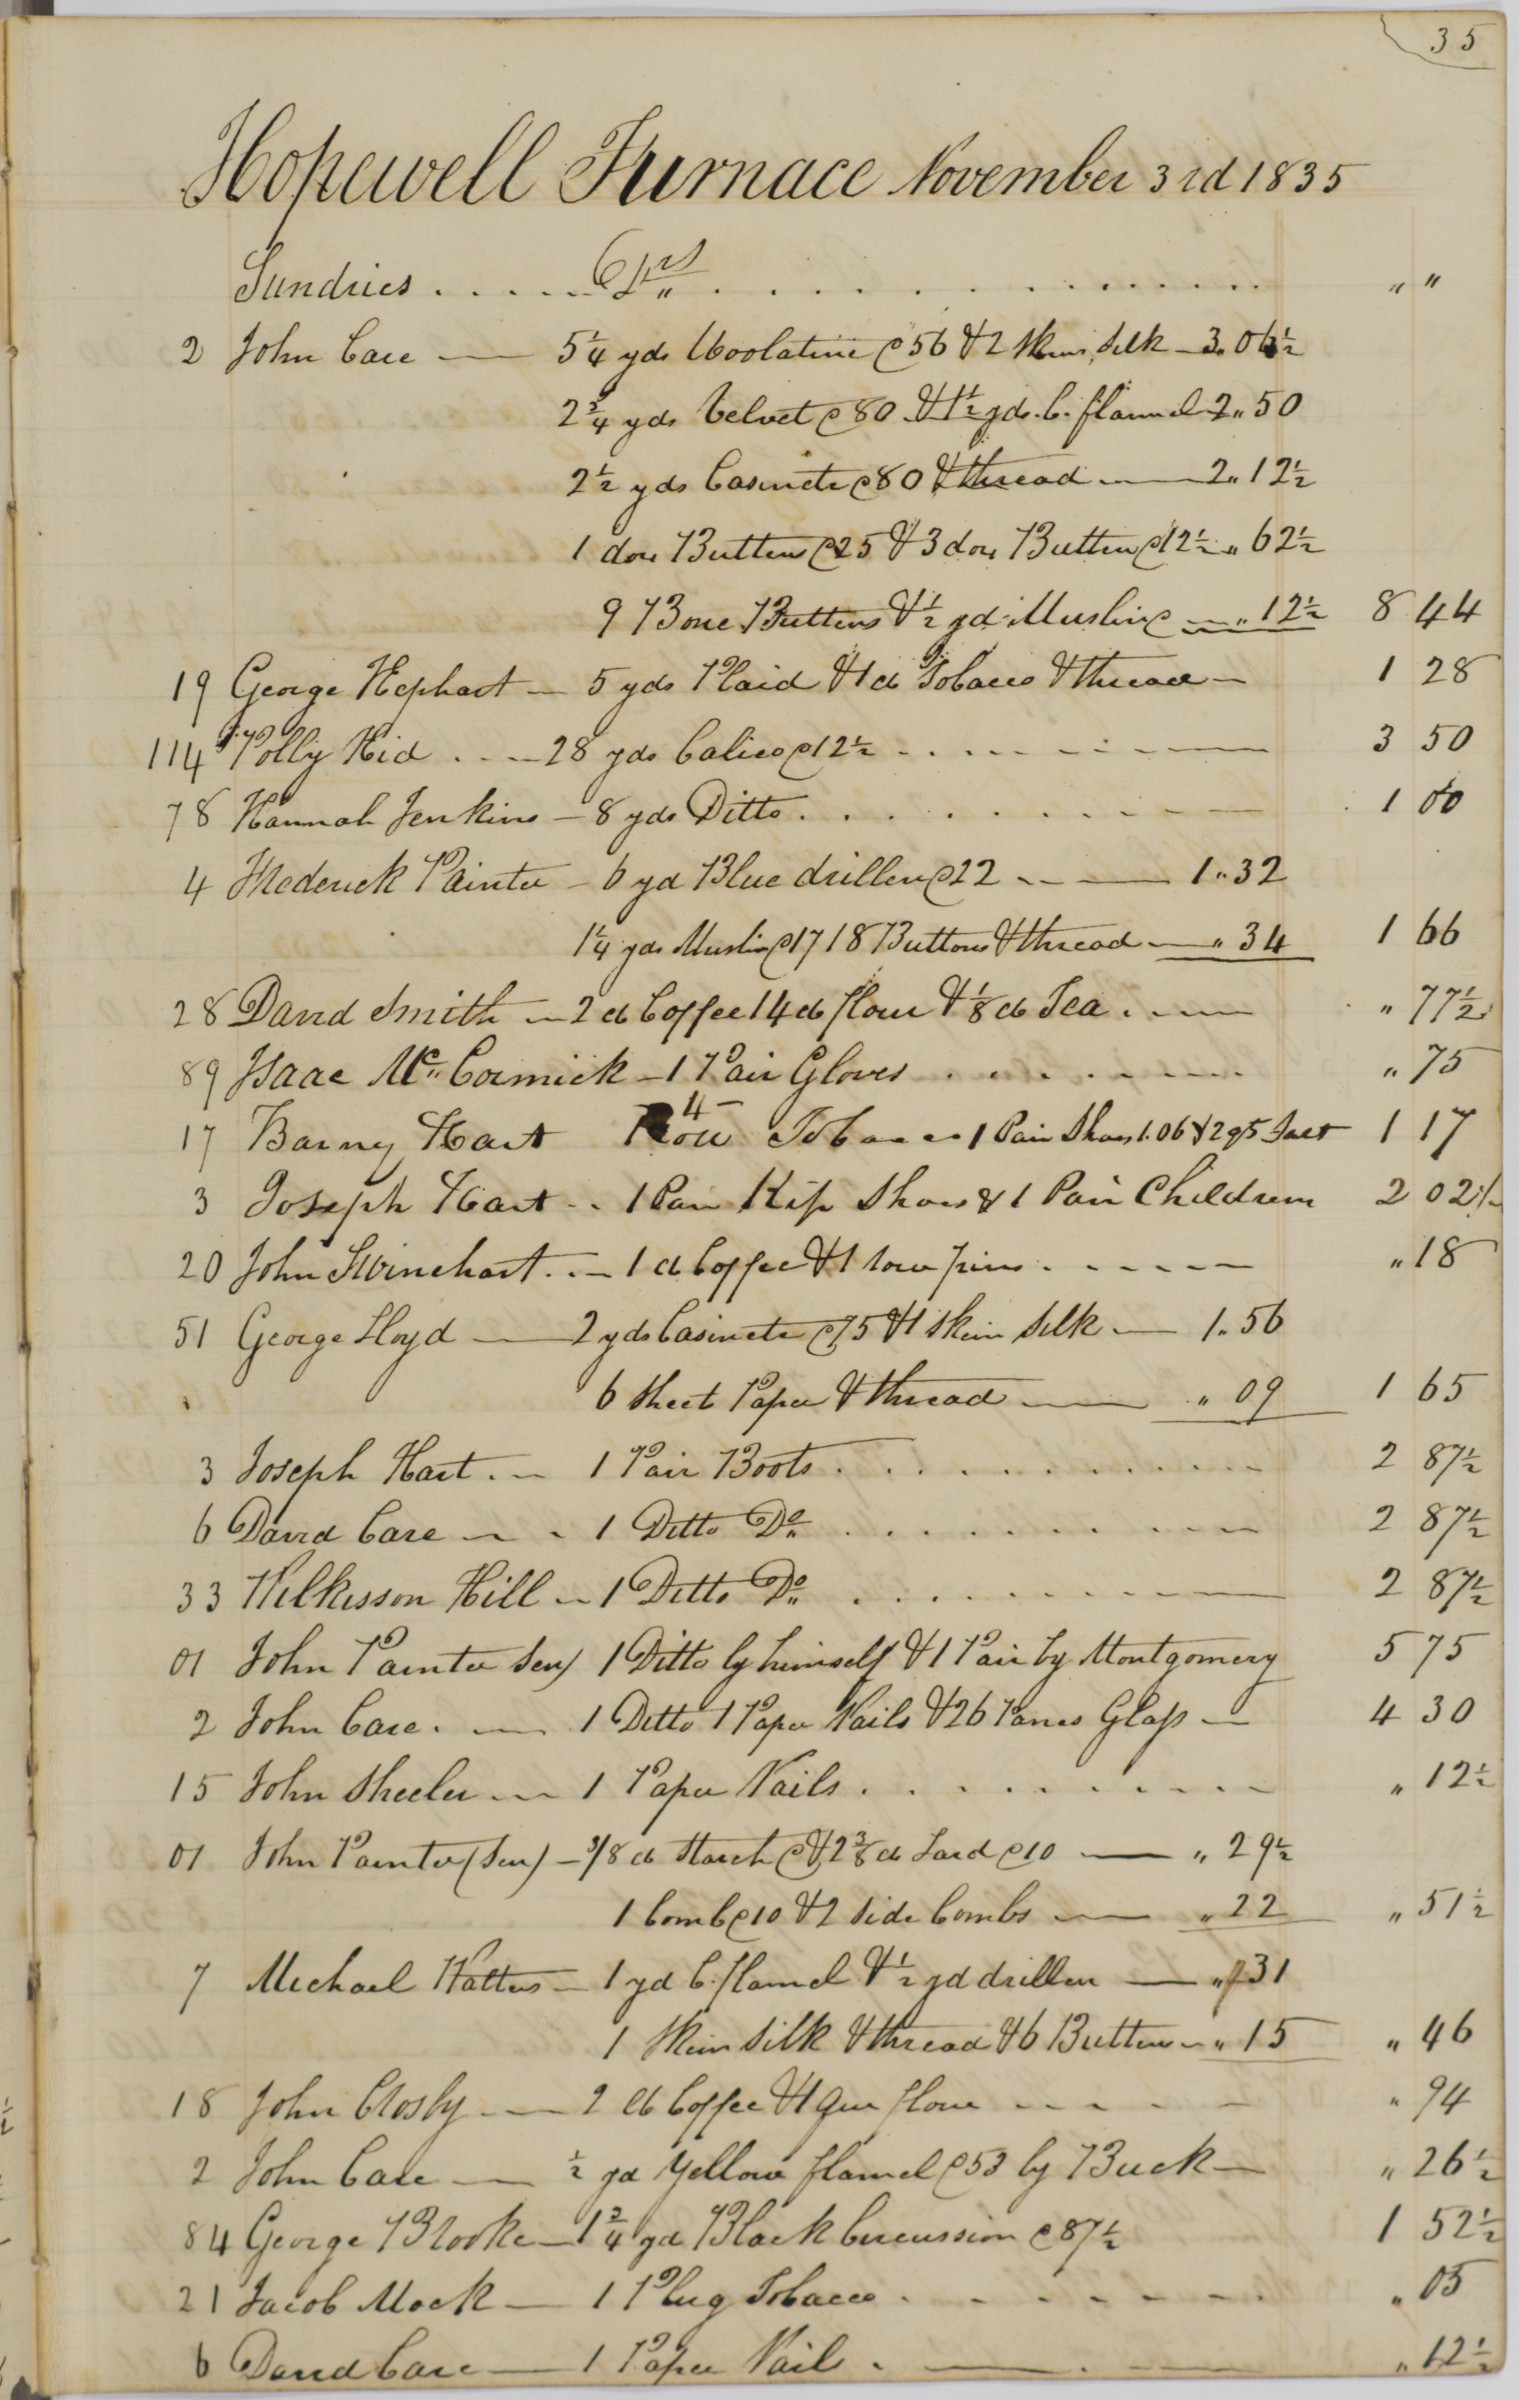 35
Hopewell Furnace November 3rd 1835
Sundries . . . . . Drs . . . . . . . . . . " "
2 John Care — 5 1/4 yds Woolatine @ 56 & 2 Skeins Silk — 3.. 06 1/2
2 3/4 yds Velvet @ 80 & 1 1/2 yds C. flannel 2.. 50
2 1/2 yds Casinete @ 80 & thread — 2.. 12 1/2
1 doz Buttons @ 25 & 3 doz Button @ 12 1/2 .. 62 1/2
9 Bone Buttons & 1/2 yd Muslin @ — .. 12 1/2 8 44
19 George Hephart — 5 yds Plaid & 1 lb Tobacco & thread — 1 28
114 Polly Kid . . — 28 yds Calico @ 12 1/2 . . . — 3 50
78 Hannah Jenkins — 8 yds Ditto . . . . . — 1 00
4 Frederick Painter — 6 yd Blue drillen @ 22 — 1.. 32
1 1/4 yds Muslin @ 17 18 Buttons & thread — .. 34 1 66
28 David Smith — 2 lb Coffee 14 lb flour & 1/8 lb Tea . — " 77 1/2
89 Isaac Mc Cormick — 1 Pair Gloves . . . . . " 75
17 Barny Hart 4 Roll Tobacco 1 Pair Shoes 1.06 & 2 qts Salt 1 17
3 Joseph Hart . . 1 Pair Kip Shoes & 1 Pair Childrens 2 02 1/2
20 John Swinehart . . — 1 lb Coffee & 1 row pins . . . . — " 18
51 George Lloyd — 2 yds Casinete @ 75 & 1 Skein Silk — 1.. 56
6 Sheet Paper & thread — " 09 1 65
3 Joseph Hart . — 1 Pair Boots . . . . . . 2 87 1/2
6 David Care — . 1 Ditto Do . . . . . . 2 87 1/2
33 Wilkisson Hill — 1 Ditto Do . . . . . — 2 87 1/2
01 John Painter Sen) 1 Ditto by himself & 1 Pair by Montgomery 5 75
2 John Care . — 1 Ditto 1 Paper Nails & 26 Panes Glass — 4 30
15 John Sheeler — 1 Paper Nails . . . . . . " 12 1/2
01 John Painter (Sen) — 3/8 lb Starch @ & 2 3/8 lb Lard @ 10 — " 29 1/2
1 Comb @ 10 & 2 Side Combs — " 22 " 51 1/2
7 Michael Watters — 1 yd C. flannel & 1/2 yd drillen — " 31
1 Skein Silk & thread & 6 Buttons — " 15 " 46
18 John Crosby — 2 lb Coffee & 1 Qur flour . . . . " 94
2 John Care — 1/2 yd Yellow flannel @ 53 by Buck — " 26 1/2
84 George Brooke — 1 3/4 yd Black Circussion @ 87 1/2 1 52 1/2
21 Jacob Mock — 1 Plug Tobacco . . . . . " 05
6 David Care — 1 Paper Nails . — . — " 12 1/2